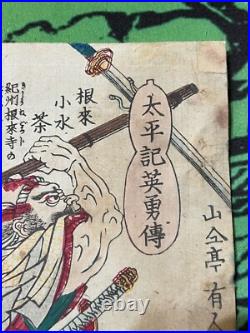 山々亭有
太平記英勇傳
根來
小水茶
紀州根來寺の